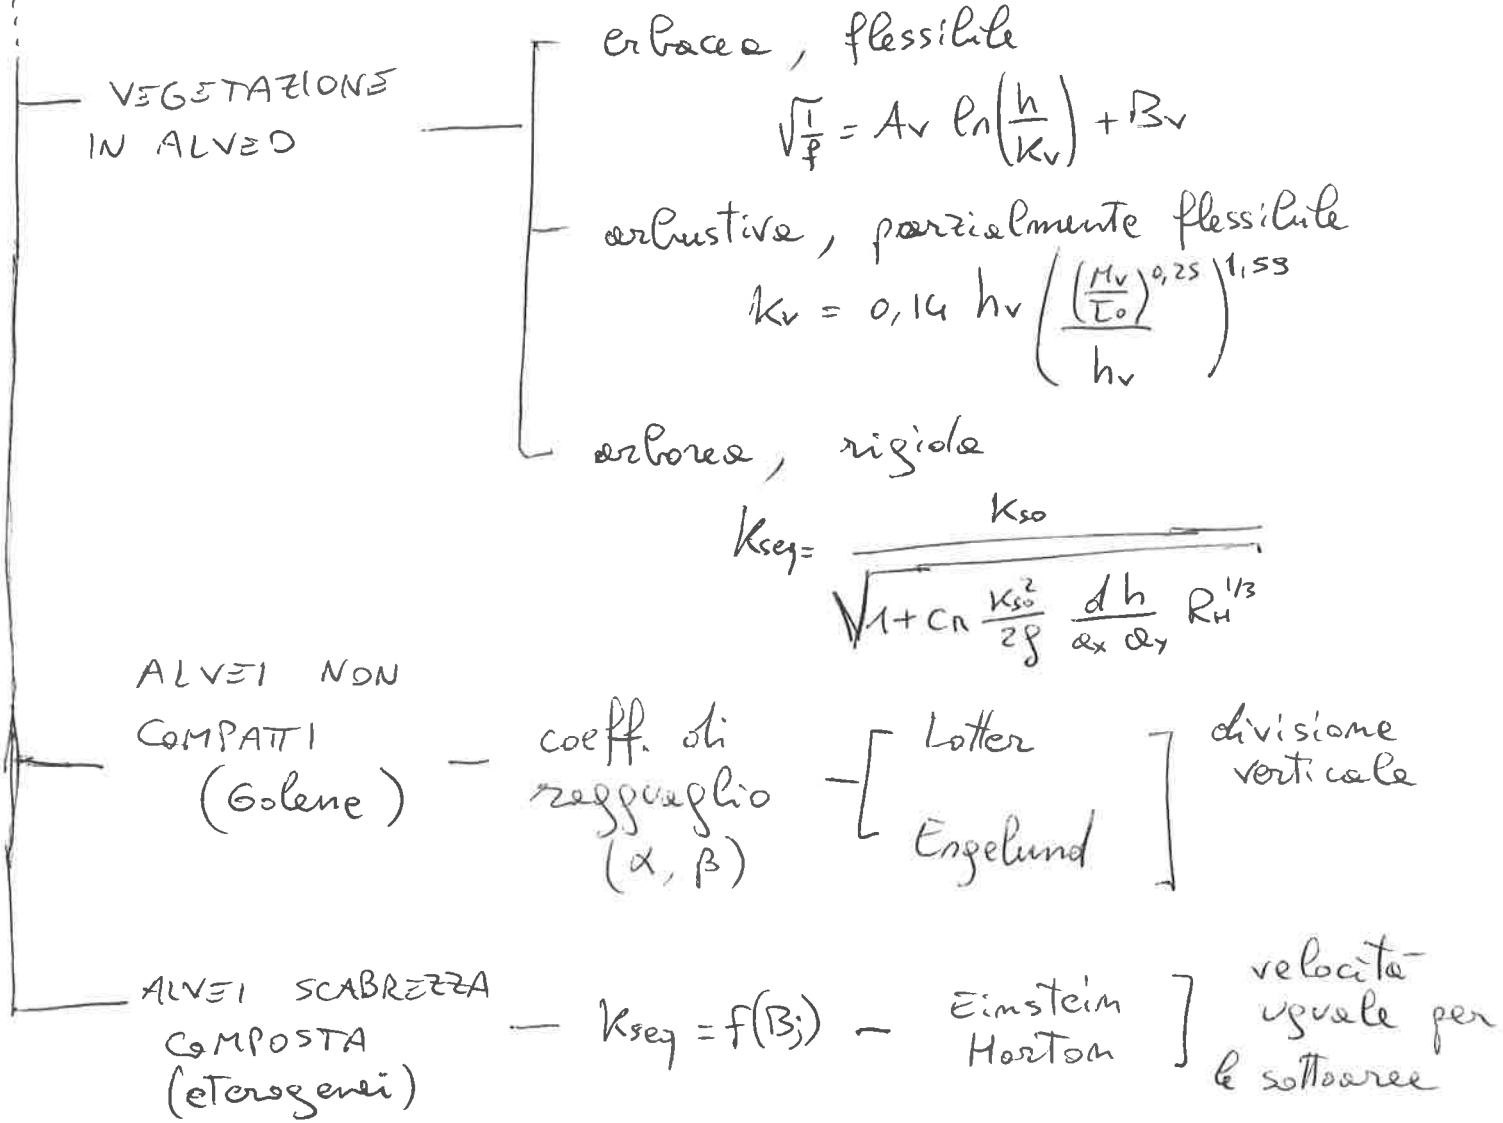 VEGETAZIONE
IN ALVEO
erbacea, flessibile
√(1/f) = Av ln(h/Kv) + Bv
arbustiva, parzialmente flessibile
Kv = 0,14 hv ((Mv/τo)^0,25 / hv)^1,59
arborea, rigida
Kseq = Kso / √(1 + CD Kso²/2g dh/(ax ay) RH^1/3)
ALVEI NON
COMPATTI
(Golene)
coeff. di
ragguaglio
(α, β)
Lotter
Engelund
divisione
verticale
ALVEI SCABREZZA
COMPOSTA
(eterogenei)
Kseq = f(Bj)
Einstein
Horton
velocità
uguale per
le sottoaree